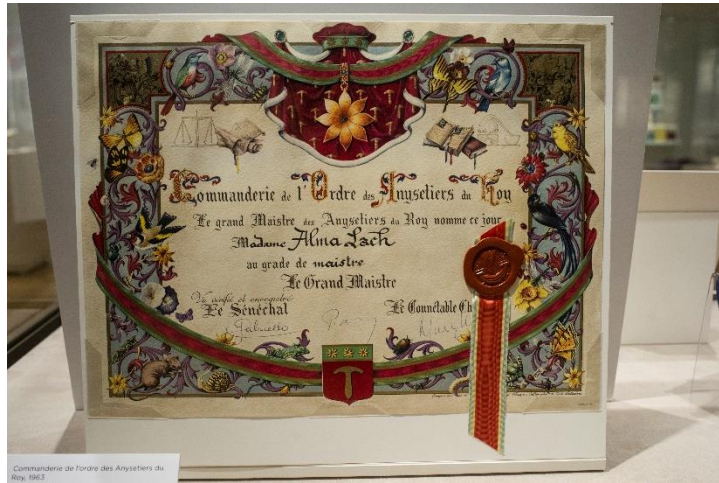 Commanderie de l'Ordre des Anysetiers du Roy
Le grand Maistre des Anysetiers du Roy nomme ce jour
Madame Alma Lach
au grade de maistre
Le Grand Maistre
Vu vérifié et enregistré
Le Sénéchal
Le Connétable Ch
Commanderie de l'ordre des Anysetiers du
Roy, 1963